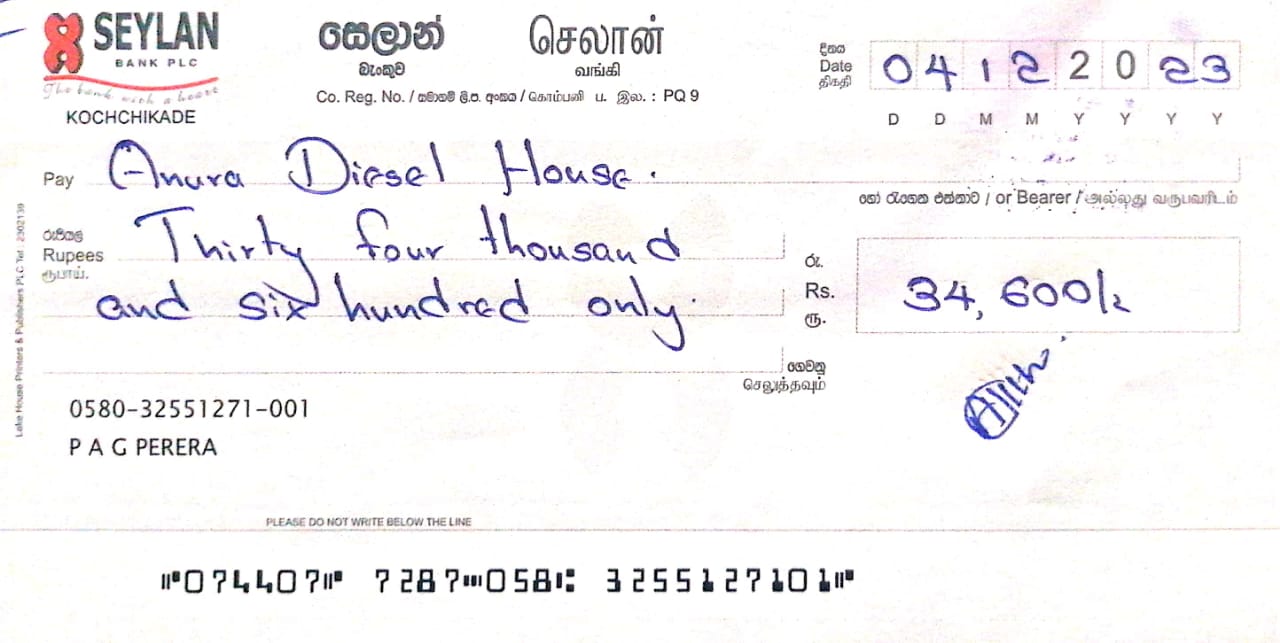 SEYLAN
BANK PLC
The bank with a heart
KOCHCHIKADE
සෙලාන් செலான்
බැංකුව வங்கி
Co. Reg. No. / සමාගම් ලි.ප. අංකය / கொம்பனி ப. இல. : PQ 9
දිනය
Date
திகதி
04 12 2023
D D M M Y Y Y Y
Pay Anura Diesel House.
හෝ රැගෙන එන්නාට / or Bearer / அல்லது வருபவரிடம்
රුපියල්
Rupees Thirty four thousand
ரூபாய்.
and six hundred only
රු.
Rs. 34,600/-
ரூ.
ගෙවනු
செலுத்தவும்
0580-32551271-001
P A G PERERA
Lake House Printers & Publishers PLC Tel : 2302139
PLEASE DO NOT WRITE BELOW THE LINE
⑈074407⑈ 7287⑉058⑆ 3255127101⑈